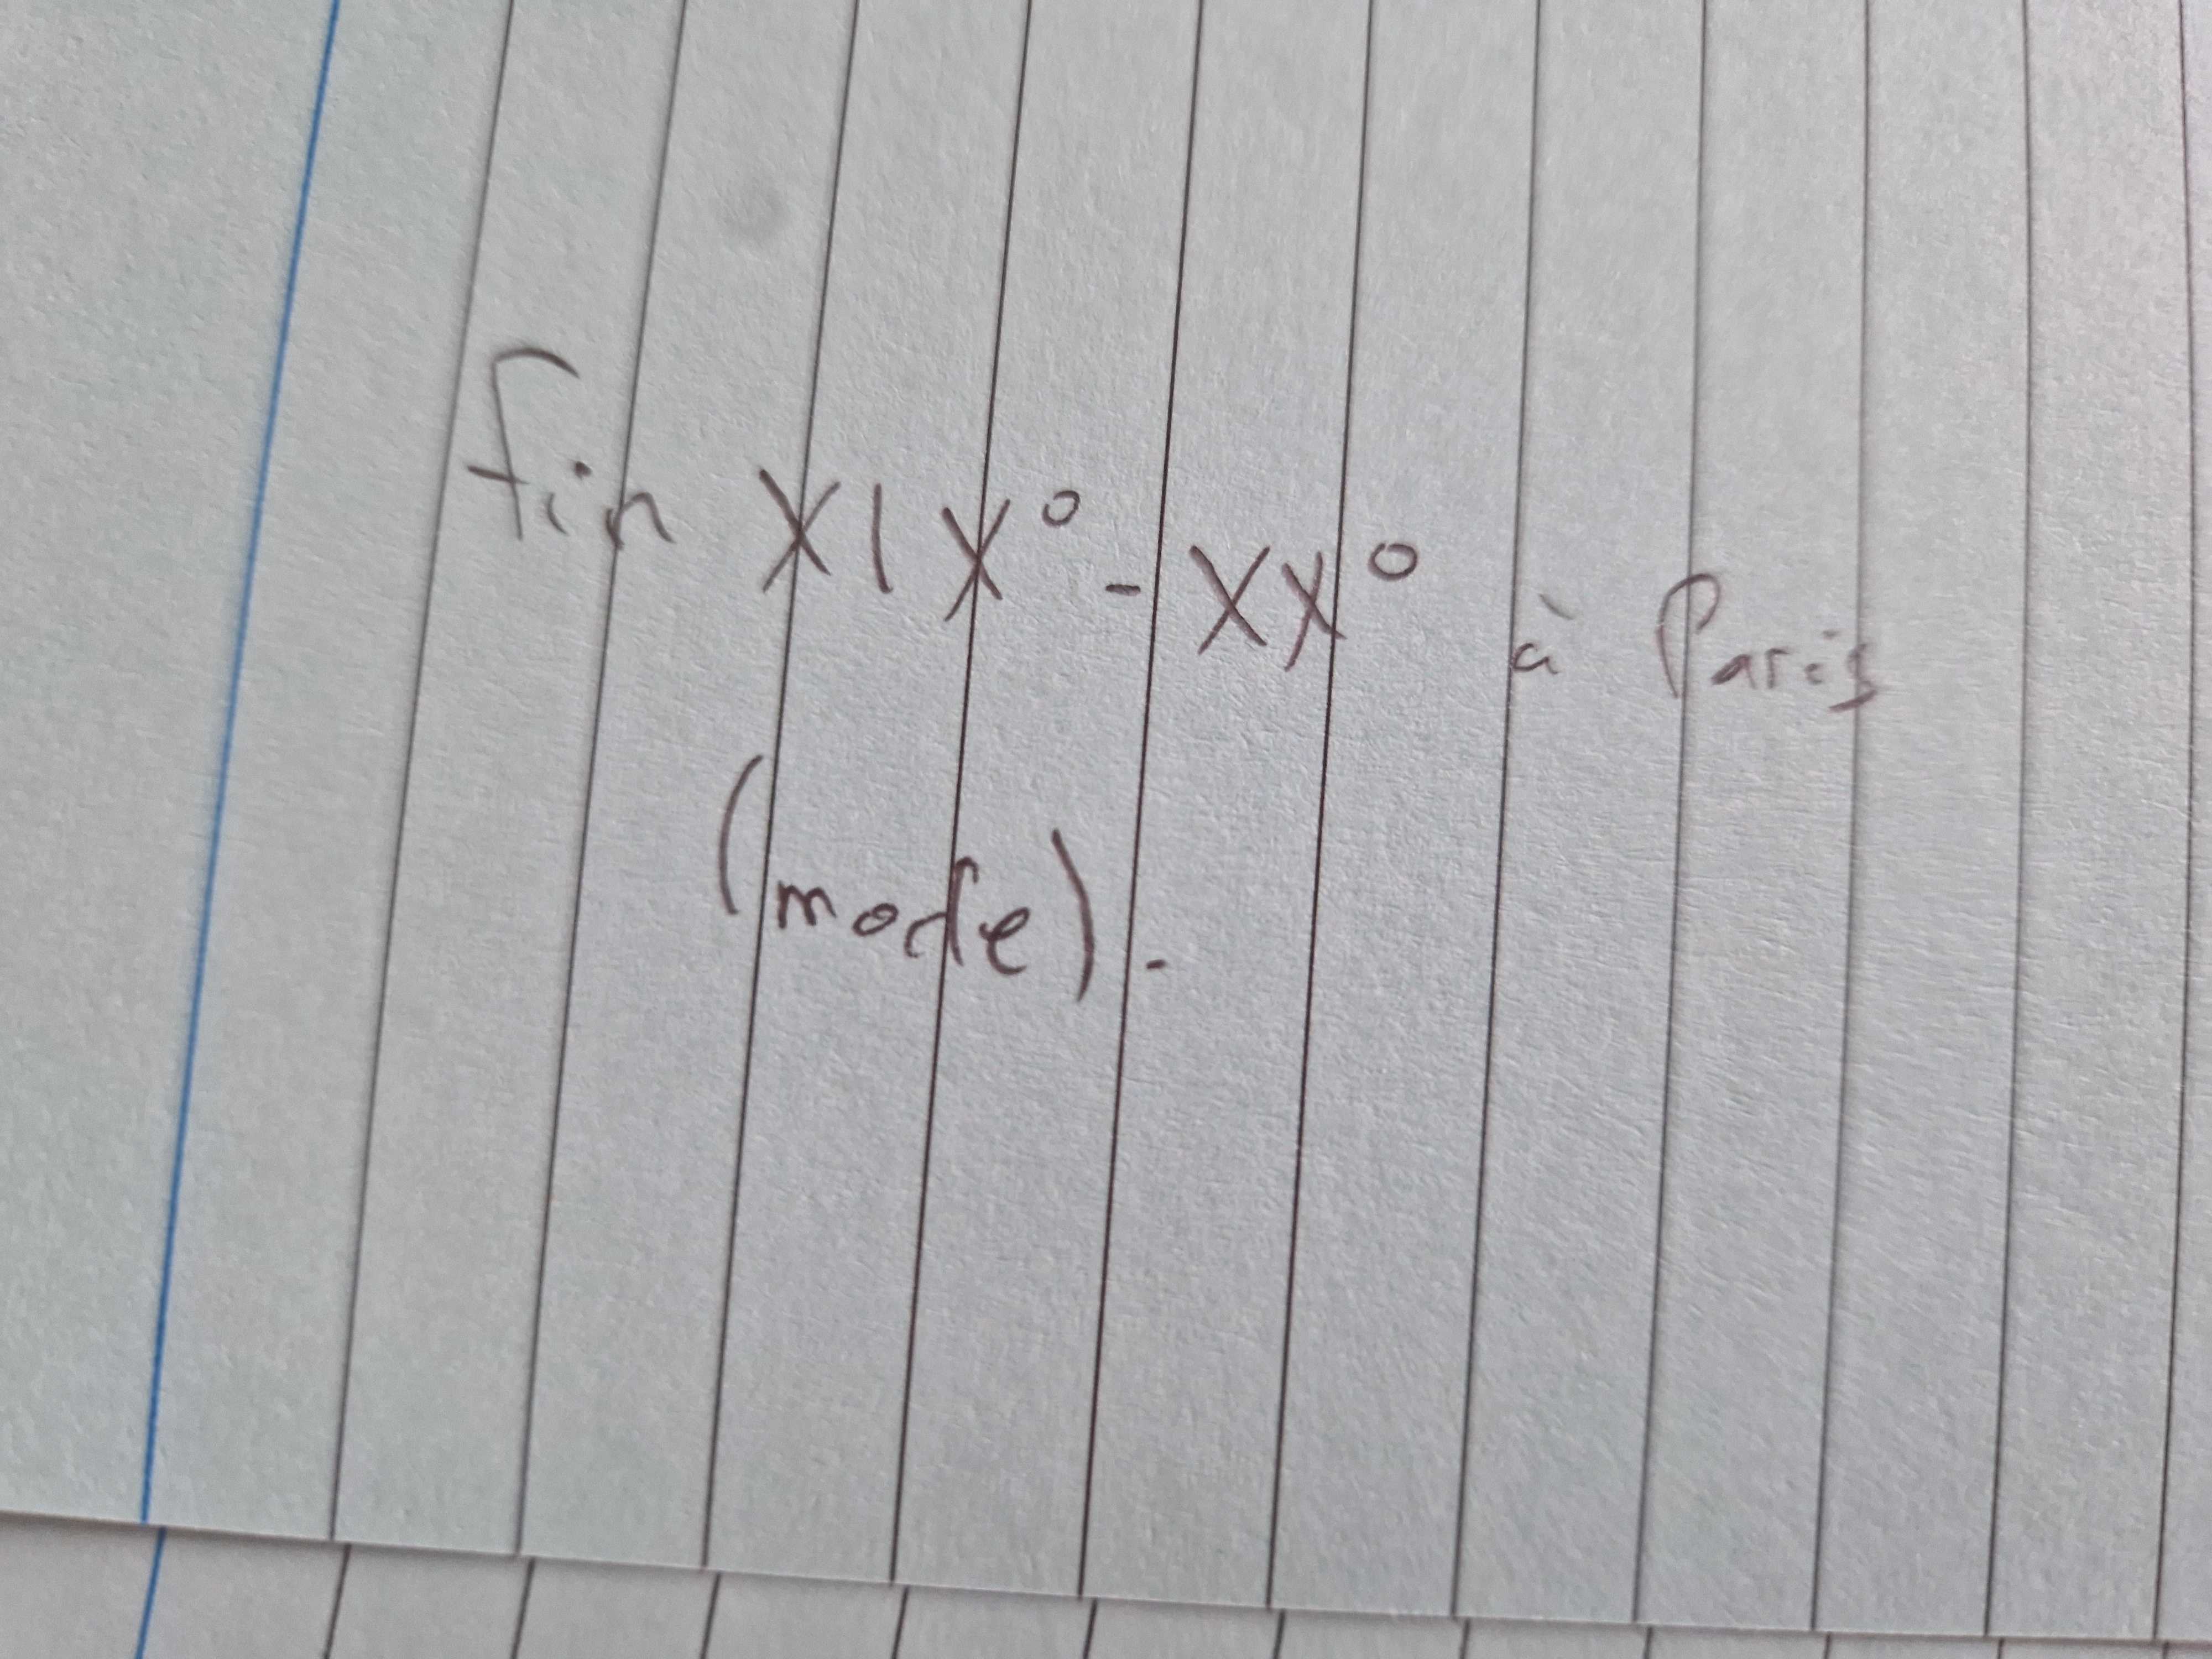 fin XIX° - XX° à Paris
(mode).